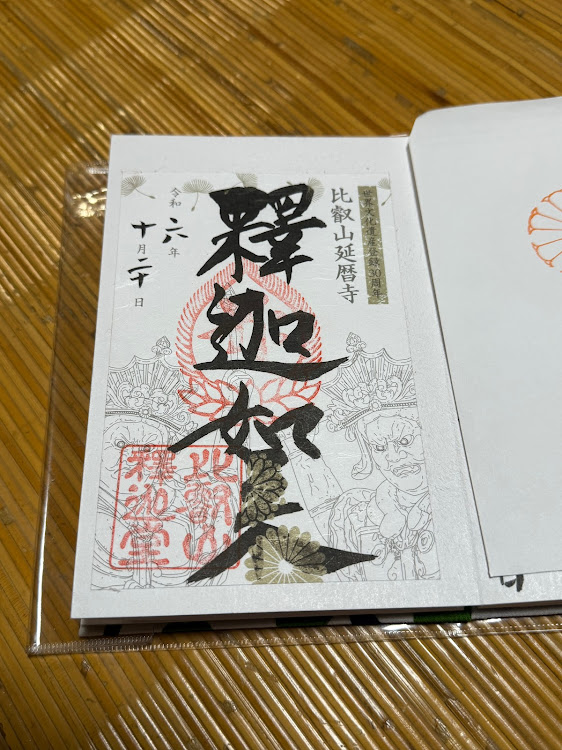 世界文化遺産登録30周年
比叡山延暦寺
釋迦如来
令和六年
十月二十日
比叡山
釋迦堂